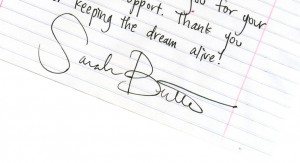 you for your
support. Thank you
keeping the dream alive!
Sarah